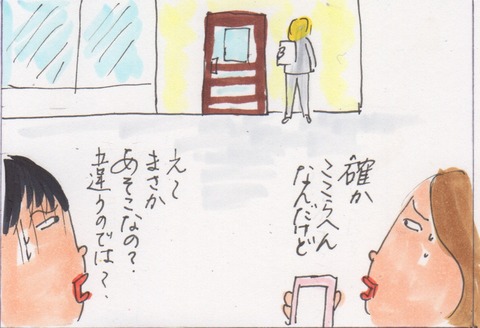 確か
ここらへん
なんだけど
え〜
まさか
あそこなの？
違うのでは？